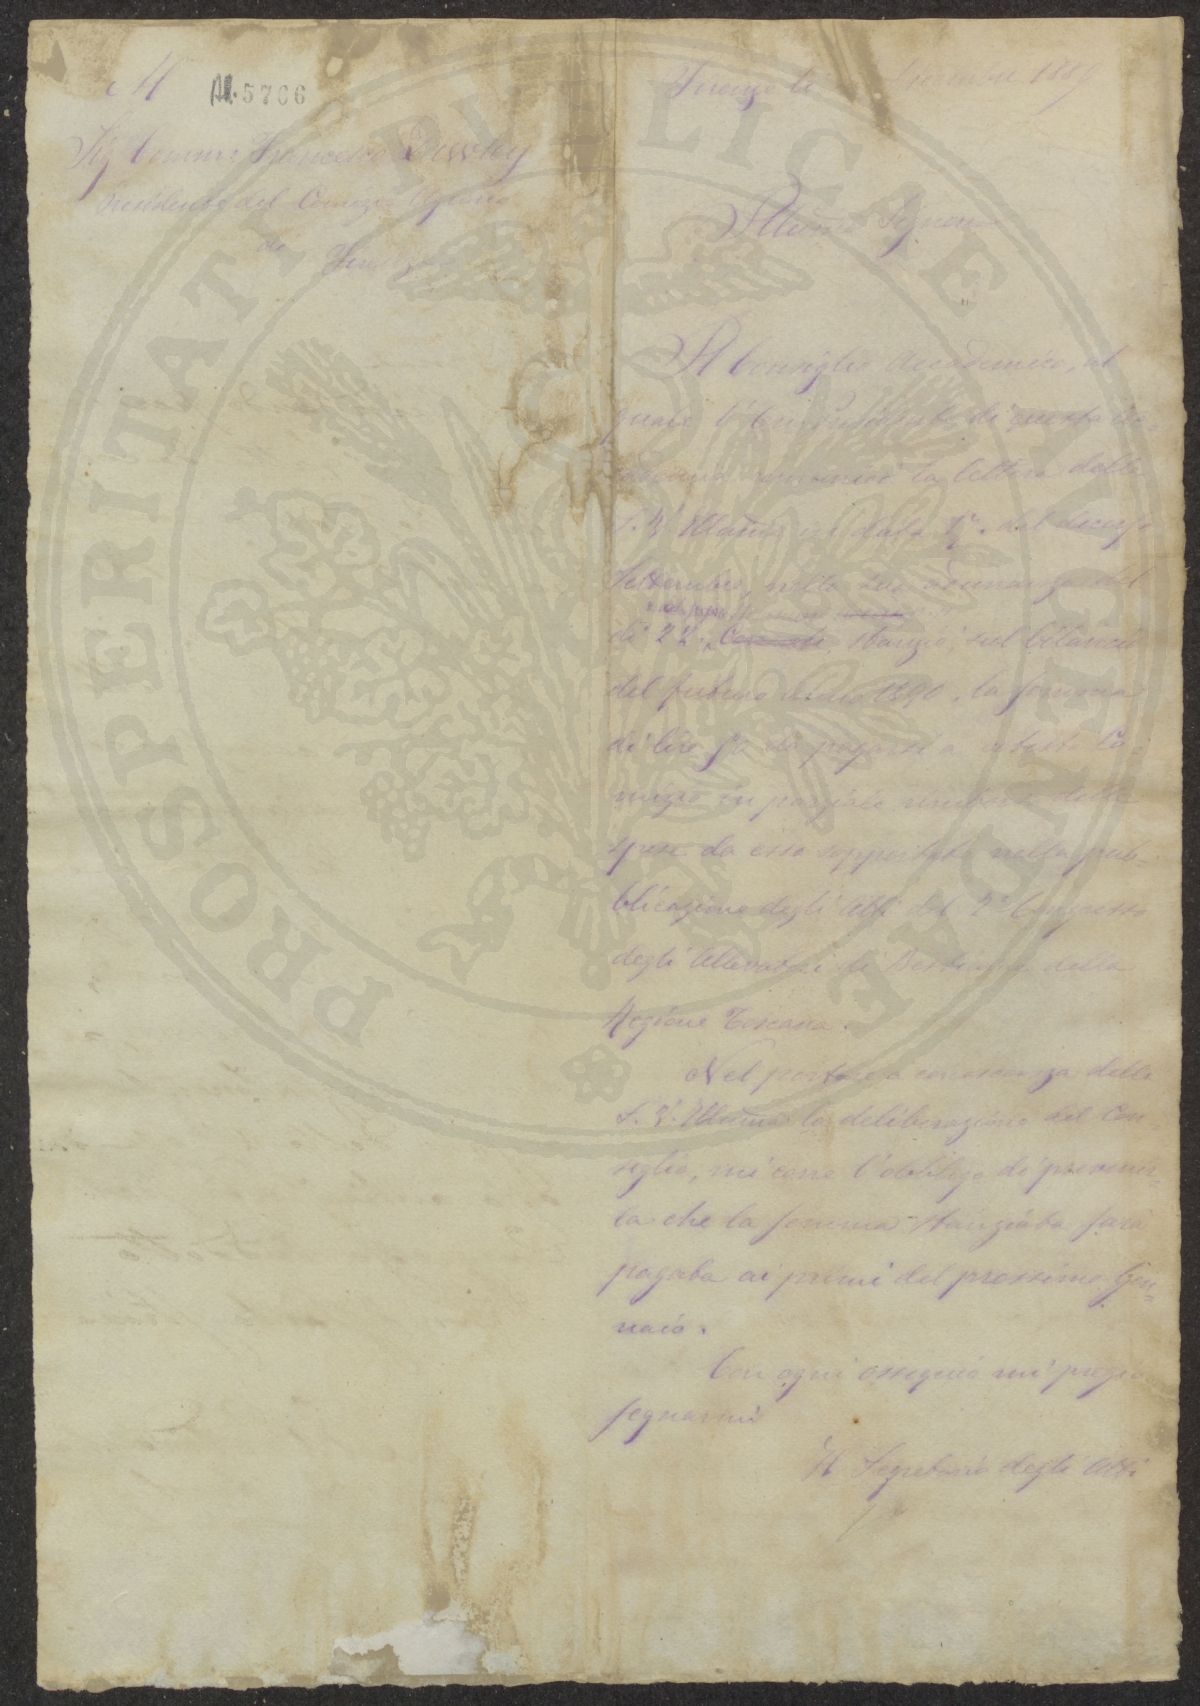 Al
AA.5706
Sig Comm Francesco
Presidente del Comizio Agrario
di Firenze
Firenze li 1889
Illmo Signore
Il Consiglio Accademico, al
quale l' di questa Ac-
cademia comunicò la lettera della
S. V. Illma in data del decorso
Settembre, nella sua adunanza del
dì 22 stanziò, sul bilancio
del futuro anno 1890, la somma
di lire da pagarsi a cotesto Co-
mizio in parziale rimborso delle
spese da esso sopportate nella pub-
blicazione degli Atti del 2° Congresso
degli Allevatori di Bestiame della
Regione Toscana.
Nel portare a conoscenza della
S. V. Illma la deliberazione del Con-
siglio, mi corre l'obbligo di prevenir-
la che la somma stanziata sarà
pagata ai primi del prossimo Gen-
naio.
Con ogni ossequio mi pregio
segnarmi
Il Segretario degli Atti
PROSPERITATI PUBLICAE AUGENDAE